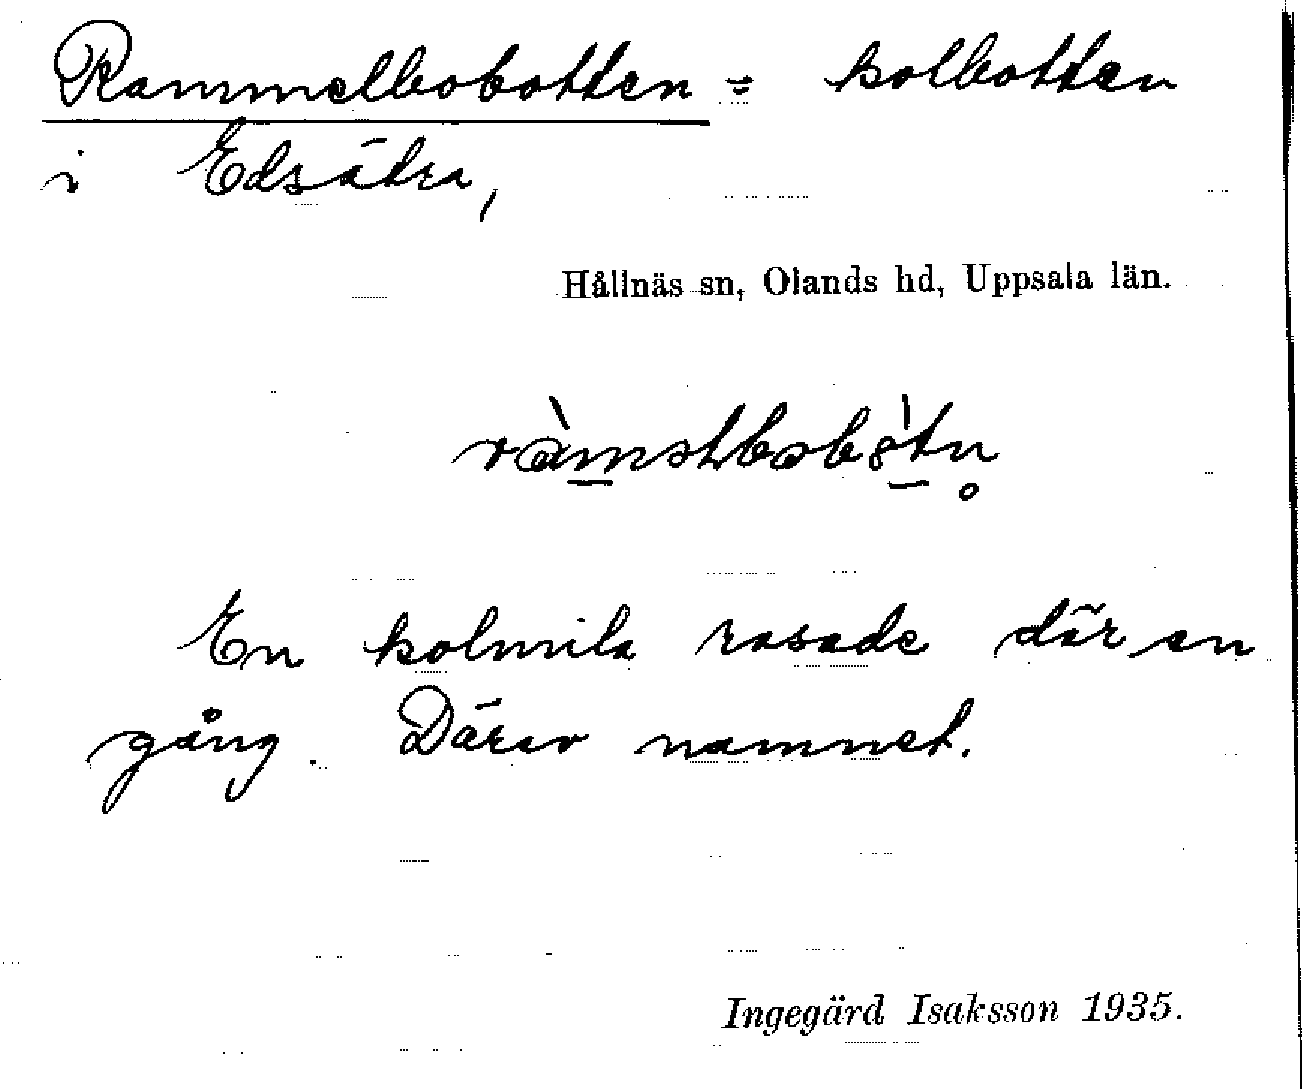 Rammelbobotten = kolbotten
i Edsätra,
Hållnäs sn, Olands hd, Uppsala län.
En kolmila rasade där en
gång. Därav namnet.
Ingegärd Isaksson 1935.